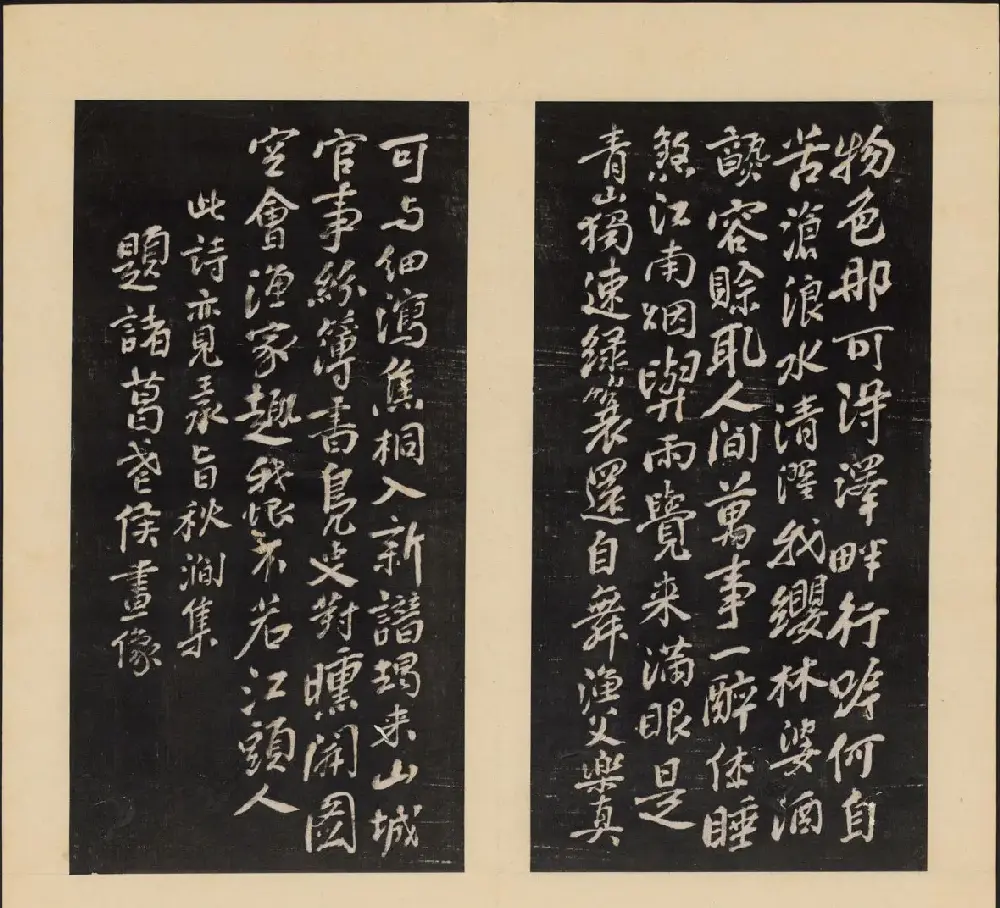 物色那可得澤畔行吟何自
苦滄浪水清濯我纓林婆酒
釅容賒取人間萬事一醉休睡
煞江南烟與雨覺来滿眼是
青山獨速綠蓑還自舞漁父樂真
可与細瀉焦桐入新譜朅来山城
官事絲簿書鳧史對曛開图
空會漁家趣我恨不若江頭人
此詩亦見王承旨秋澗集
題諸葛武侯畫像